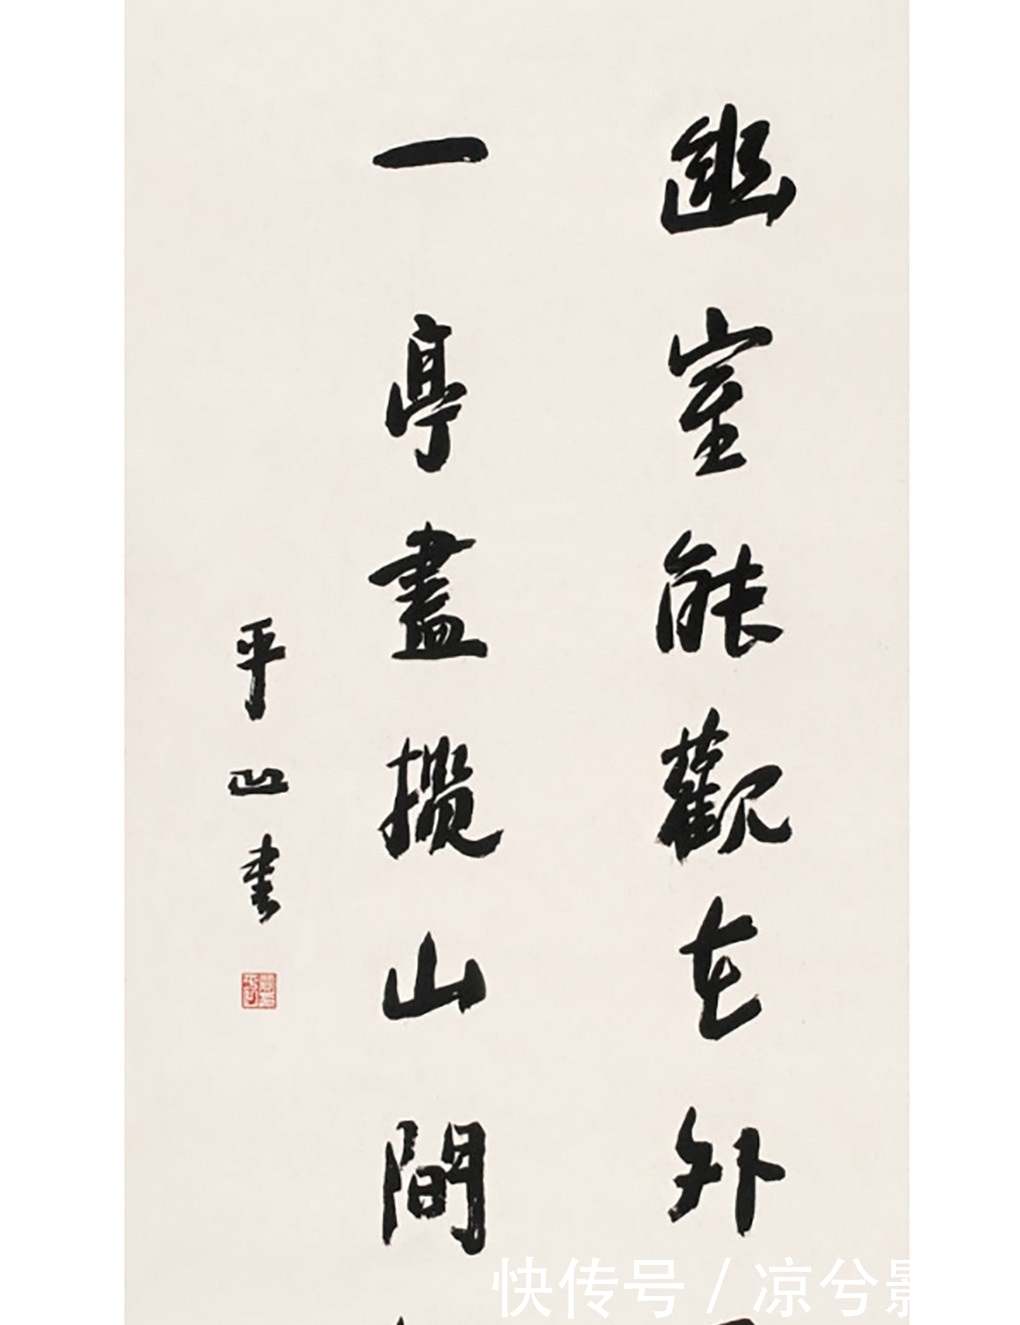 幽室能觀在外
一亭盡攬山間
平凹書
快传号 / 凉兮影